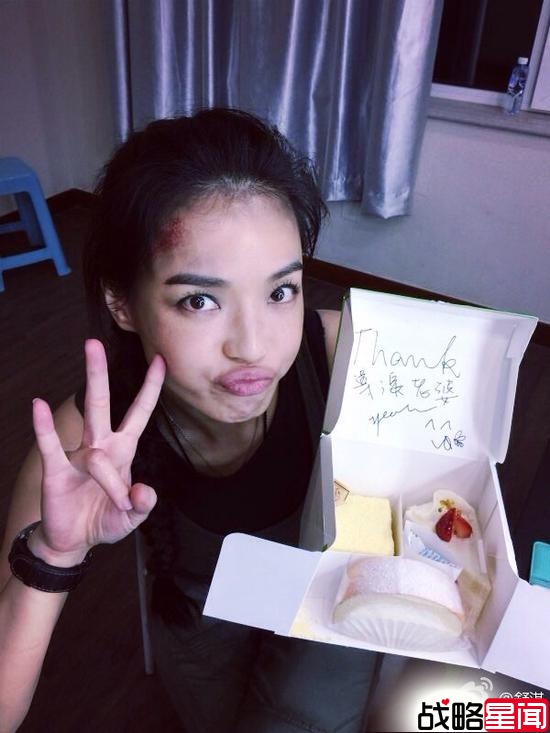 Thank
老婆
yeah
^^
@舒淇
战略星闻